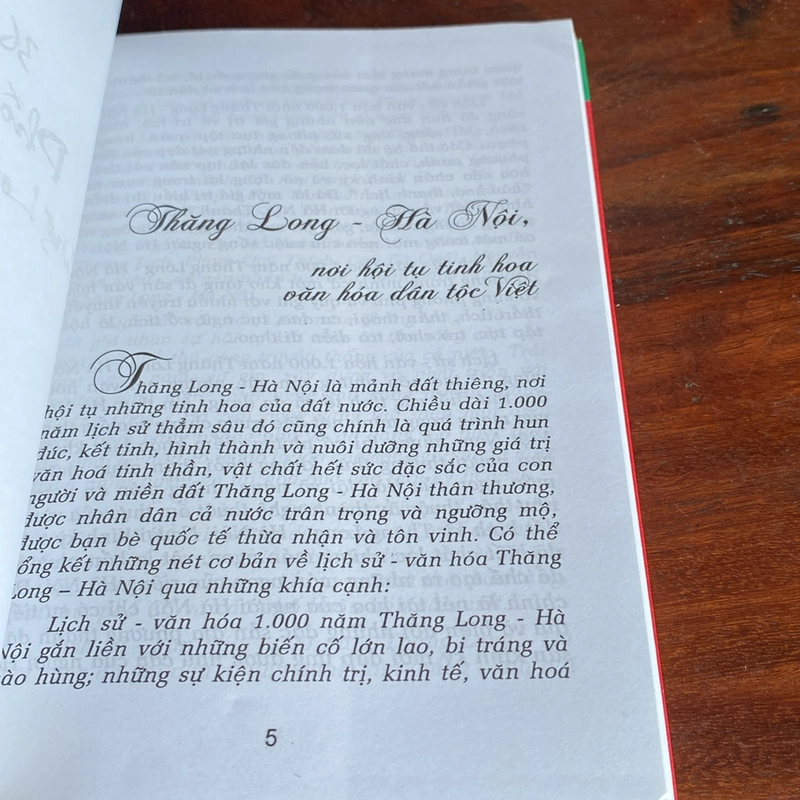 36
Phố
Thăng Long - Hà Nội,
nơi hội tụ tinh hoa
văn hóa dân tộc Việt
Thăng Long - Hà Nội là mảnh đất thiêng, nơi
hội tụ những tinh hoa của đất nước. Chiều dài 1.000
năm lịch sử thẳm sâu đó cũng chính là quá trình hun
đúc, kết tinh, hình thành và nuôi dưỡng những giá trị
văn hoá tinh thần, vật chất hết sức đặc sắc của con
người và miền đất Thăng Long - Hà Nội thân thương,
được nhân dân cả nước trân trọng và ngưỡng mộ,
được bạn bè quốc tế thừa nhận và tôn vinh. Có thể
ổng kết những nét cơ bản về lịch sử - văn hóa Thăng
Long – Hà Nội qua những khía cạnh:
Lịch sử - văn hóa 1.000 năm Thăng Long - Hà
Nội gắn liền với những biến cố lớn lao, bi tráng và
hào hùng; những sự kiện chính trị, kinh tế, văn hoá
5